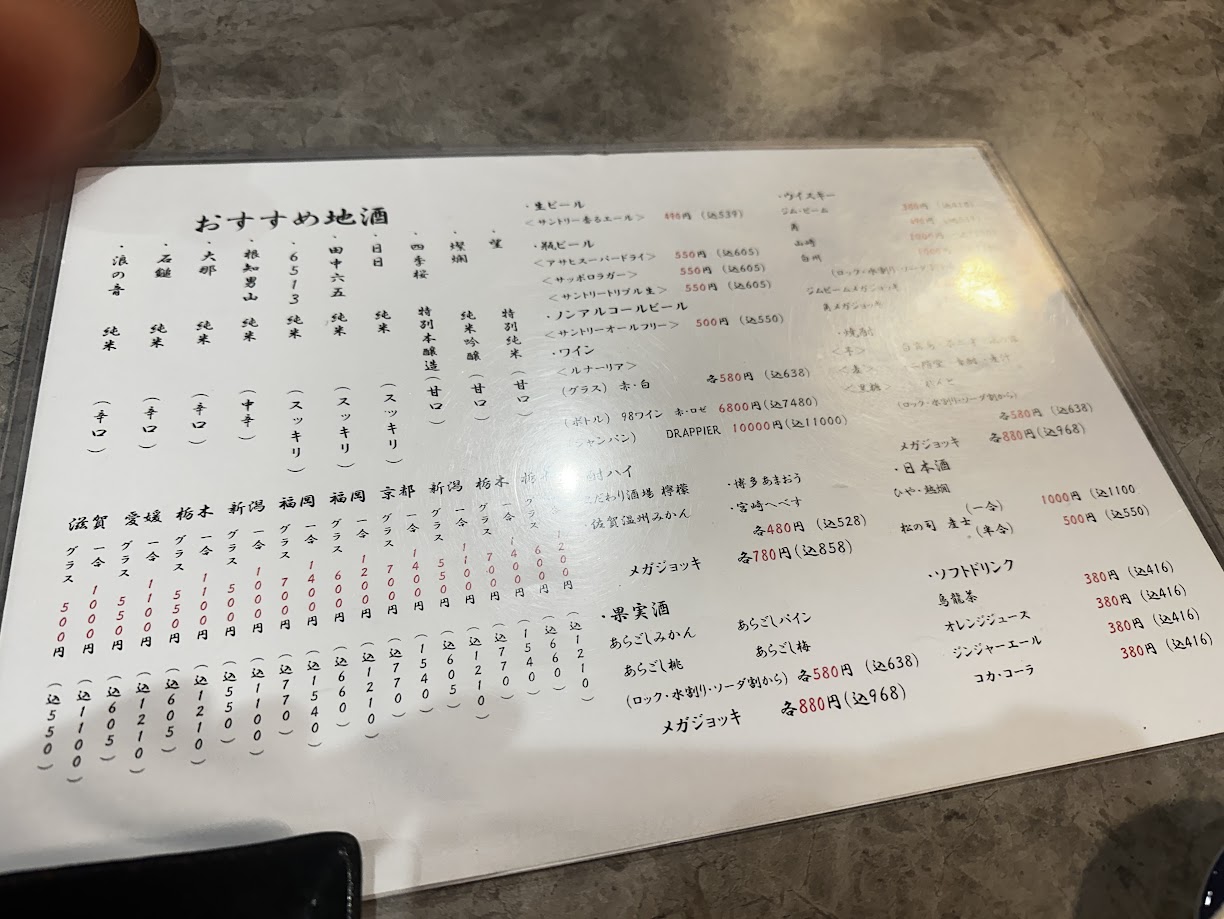 おすすめ地酒
・望 特別純米 (甘口) 栃木
一合 1200円 (込1210)
グラス 600円 (込660)
・燦爛 純米吟醸 (甘口) 栃木
一合 1400円 (込1540)
グラス 700円 (込770)
・四季桜 特別本醸造 (甘口) 新潟
一合 1100円 (込1210)
グラス 550円 (込605)
・日日 純米 (スッキリ) 京都
一合 1400円 (込1540)
グラス 700円 (込770)
・田中六五 純米 (スッキリ) 福岡
一合 1200円 (込1210)
グラス 600円 (込660)
・6513 純米 (スッキリ) 福岡
一合 1400円 (込1540)
グラス 700円 (込770)
・根知男山 純米 (中辛) 新潟
一合 1000円 (込1100)
グラス 500円 (込550)
・大那 純米 (辛口) 栃木
一合 1100円 (込1210)
グラス 550円 (込605)
・石鎚 純米 (辛口) 愛媛
一合 1100円 (込1210)
グラス 550円 (込605)
・浪の音 純米 (辛口) 滋賀
一合 1000円 (込1100)
グラス 500円 (込550)
・生ビール
<サントリー香るエール> 490円 (込539)
・瓶ビール
<アサヒスーパードライ> 550円 (込605)
<サッポロラガー> 550円 (込605)
<サントリートリプル生> 550円 (込605)
・ノンアルコールビール
<サントリーオールフリー> 500円 (込550)
・ワイン
<ルナーリア>
(グラス) 赤・白 各580円 (込638)
(ボトル) 98ワイン 赤・ロゼ 6800円(込7480)
シャンパン) DRAPPIER 10000円(込11000)
酎ハイ
こだわり酒場 檸檬 ・博多あまおう
・佐賀温州みかん ・宮崎へべす
各480円 (込528)
メガジョッキ 各780円(込858)
・果実酒
あらごしみかん あらごしパイン
あらごし桃 あらごし梅
(ロック・水割り・ソーダ割から) 各580円 (込638)
メガジョッキ 各880円(込968)
・ウイスキー
ジム・ビーム 380円 (込418)
山崎
白州
(ロック・水割り・ソーダ割
ジムビームメガジョッキ
メガジョッキ
・焼酎
<芋>
<麦>
<黒糖>
(ロック・水割り・ソーダ割から)
各580円 (込638)
メガジョッキ 各880円(込968)
・日本酒
ひや・熱燗
松の司 産土 (一合) 1000円 (込1100
(半合) 500円 (込550)
・ソフトドリンク
烏龍茶 380円 (込416)
オレンジジュース 380円 (込416)
ジンジャーエール 380円 (込416)
コカ・コーラ 380円 (込416)